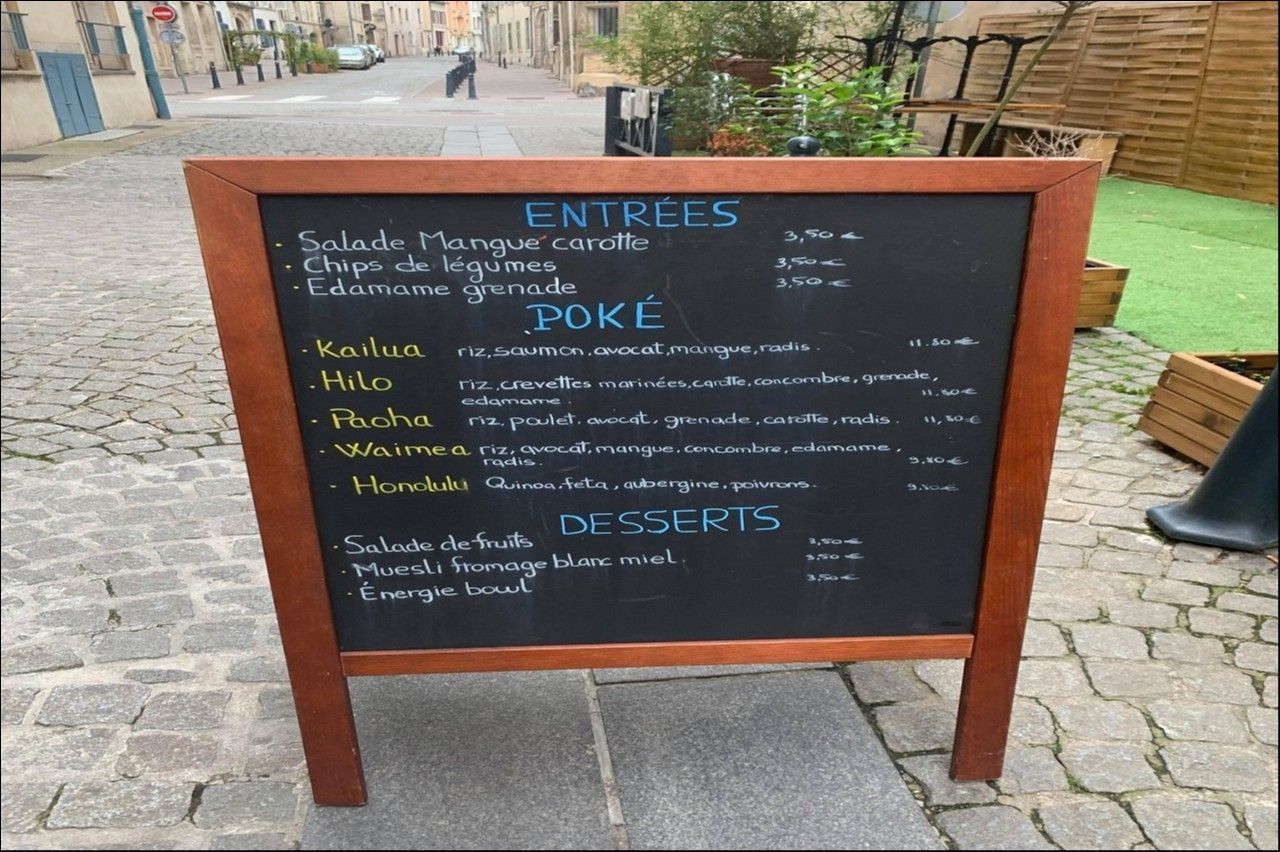 ENTRÉES
· Salade Mangue carotte 3,50 €
· Chips de légumes 3,50 €
· Edamame grenade 3,50 €
POKÉ
· Kailua riz, saumon, avocat, mangue, radis. 11.80 €
· Hilo riz, crevettes marinées, carotte, concombre, grenade,
edamame. 11,80 €
· Paoha riz, poulet, avocat, grenade, carotte, radis. 11,80 €
· Waimea riz, avocat, mangue, concombre, edamame,
radis. 9,80 €
· Honolulu Quinoa, feta, aubergine, poivrons. 9.80 €
DESSERTS
· Salade de fruits 3,50 €
· Muesli fromage blanc miel. 3,50 €
· Énergie bowl 3,50 €